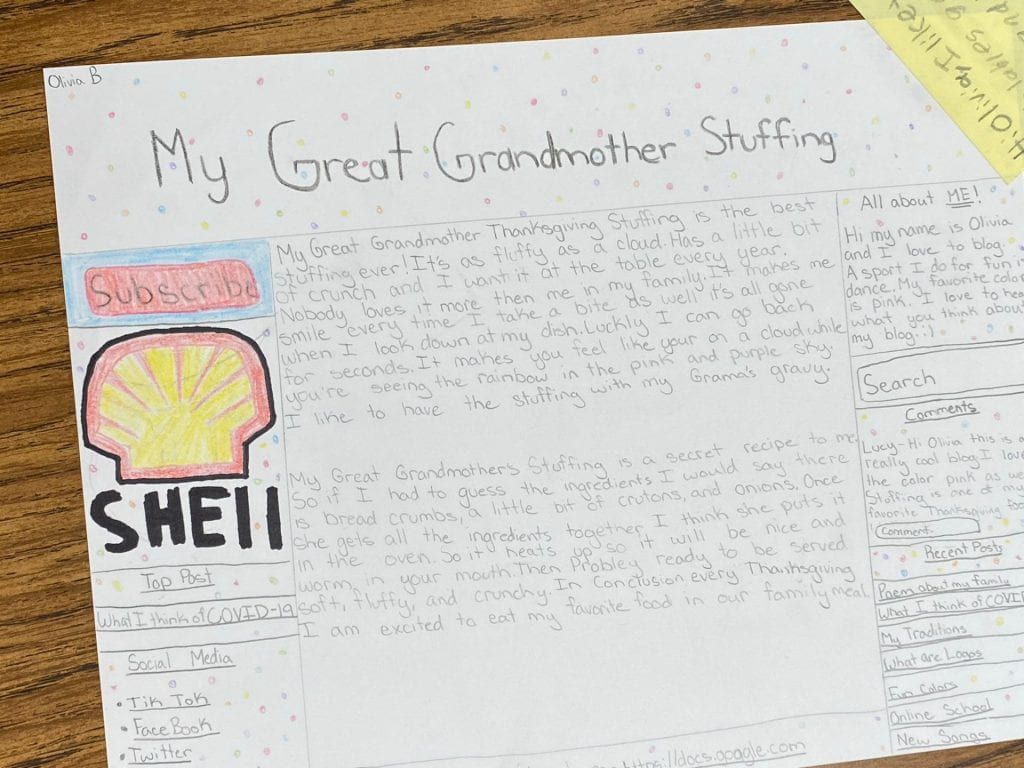 Olivia B
My Great Grandmother Stuffing
Subscribe
SHEll
Top Post
What I think of COVID-19
Social Media
• Tik Tok
• FaceBook
• Twitter
My Great Grandmother Thanksgiving Stuffing is the best
stuffing ever! It's as fluffy as a cloud. Has a little bit
of crunch and I want it at the table every year.
Nobody loves it more then me in my family. It makes me
smile every time I take a bite as well it's all gone
when I look down at my dish. Luckly I can go back
for seconds. It makes you feel like your on a cloud while
you're seeing the rainbow in the pink and purple sky.
I like to have the stuffing with my Grama's gravy.
My Great Grandmother's Stuffing is a secret recipe to me
So if I had to guess the ingredients I would say there
is bread crumbs, a little bit of crutons, and onions. Once
she gets all the ingredients together I think she puts it
in the oven. So it heats up so it will be nice and
worm, in your mouth. Then Probley ready to be served
soft, fluffy, and crunchy. In Conclusion every Thanksgiving
I am excited to eat my favorite food in our family meal.
https://docs.google.com
All about ME!
Hi my name is Olivia
and I love to blog.
A sport I do for fun is
dance. My favorite color
is pink. I love to hear
what you think about
my blog. :)
Search
Comments
Lucy-Hi Olivia this is a
really cool blog I love
the color pink as we
Stuffing is one of
favorite Thanksgiving foo
Comment
Recent Posts
Poem about my family
What I think of COVI
My Traditions
What are Loops
Fun Colors
Online School
New Songs
Hi Olivia, I like